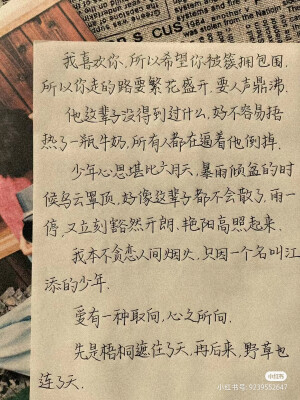 was stolen from the Nation
我喜欢你、所以希望你被簇拥包围.
所以你走的路要繁花盛开.要人声鼎沸.
他这辈子没得到过什么,好不容易捂
热了一瓶牛奶,所有人都在逼着他倒掉.
少年心思堪比六月天,暴雨倾盆的时
候乌云罩顶,好像这辈子都不会散了.雨一
停,又立刻豁然开朗、艳阳高照起来.
我本不贪恋人间烟火,只因一个名叫江
添的少年.
爱有一种取向,心之所向.
先是梧桐遮住了天,再后来,野草也
连了天.
小红书
小红书号:9239552647